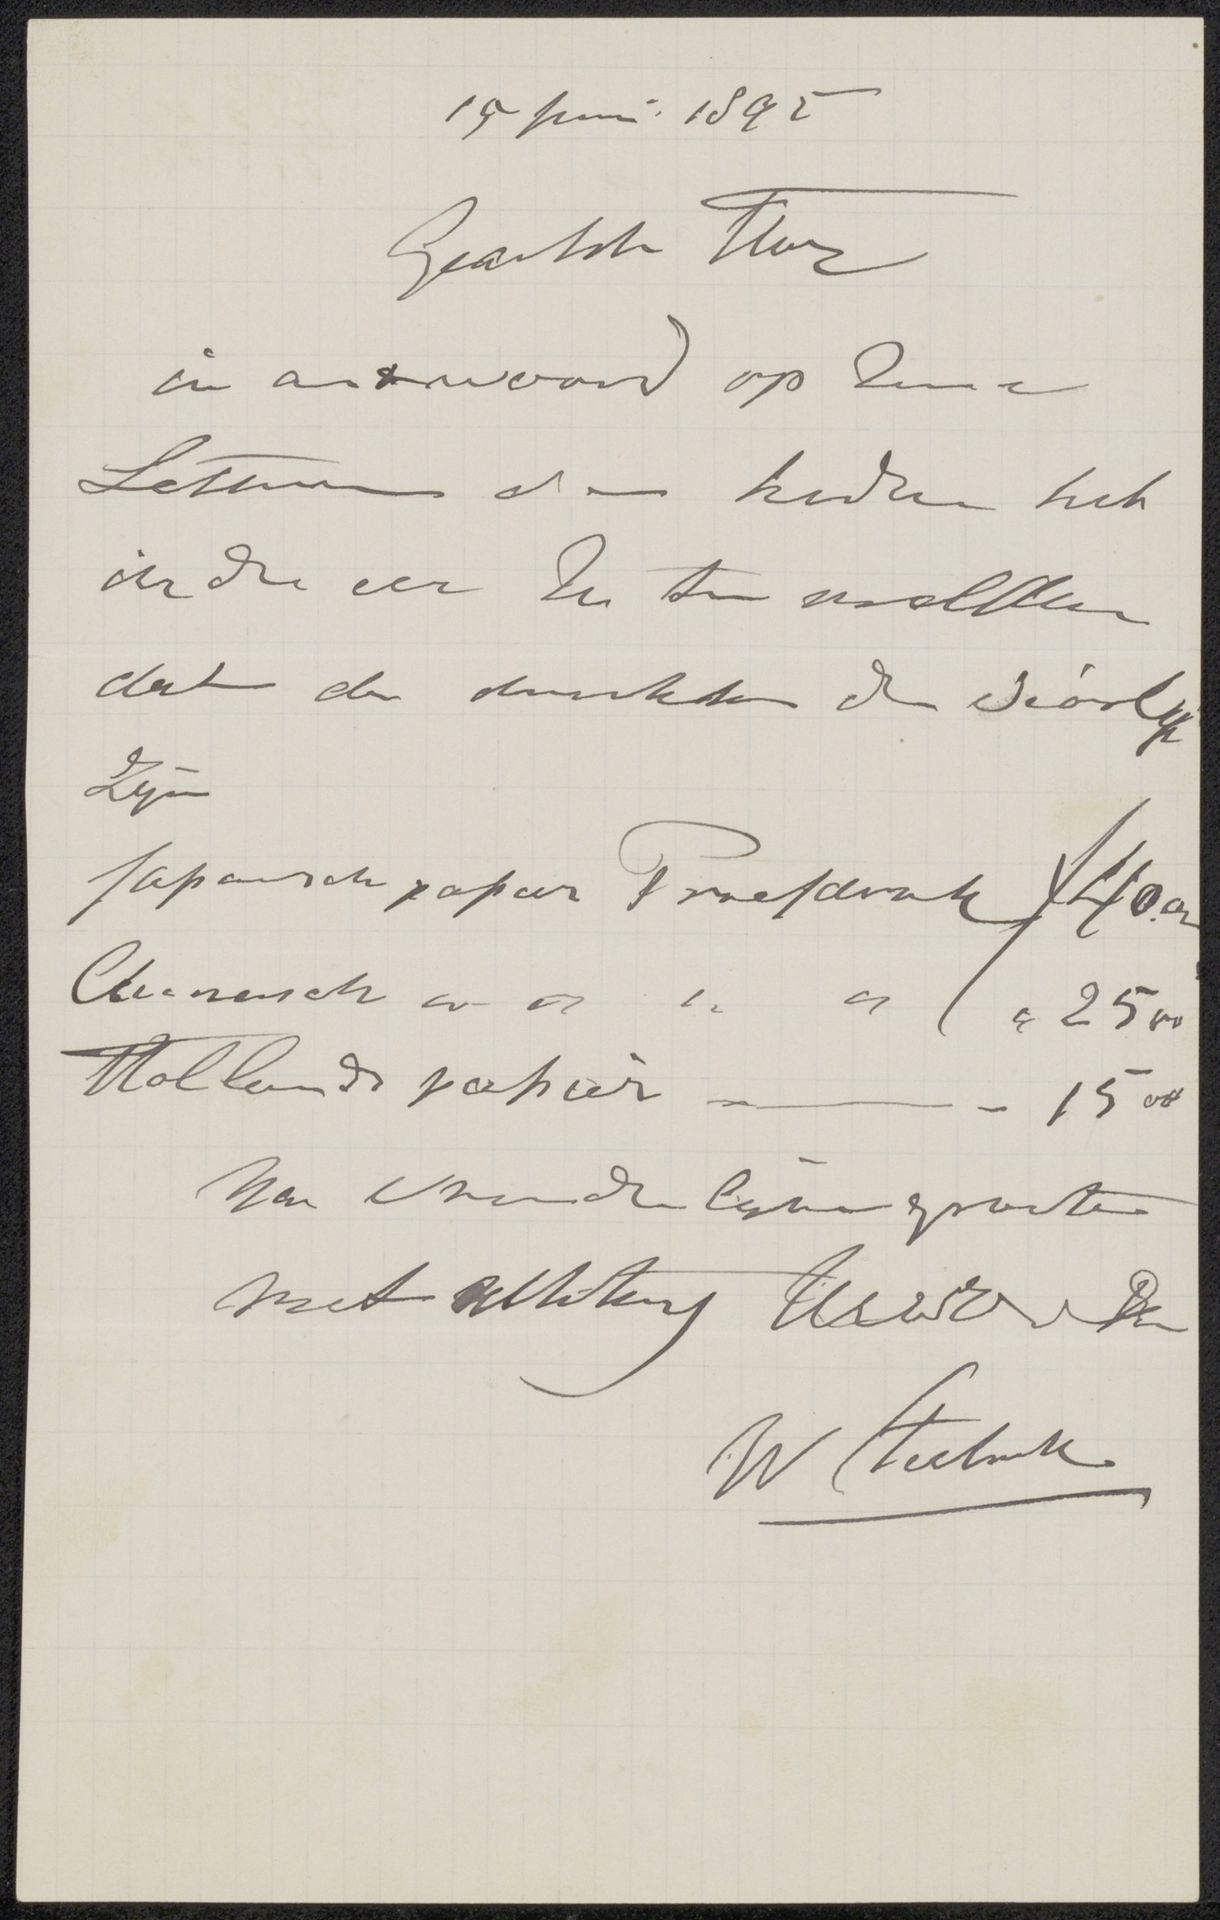 15 Juni. 1895
Geachte Heer
in antwoord op Uwe
Letteren van heden heb
ik de eer U te melden
dat de drukken de
Zijn
Japansch papier Proefdruk f 40.00
Chineesch " " " " " 25 00
Hollands papier — 15 00
Na vriendelijke groeten
met achting
W Steelink